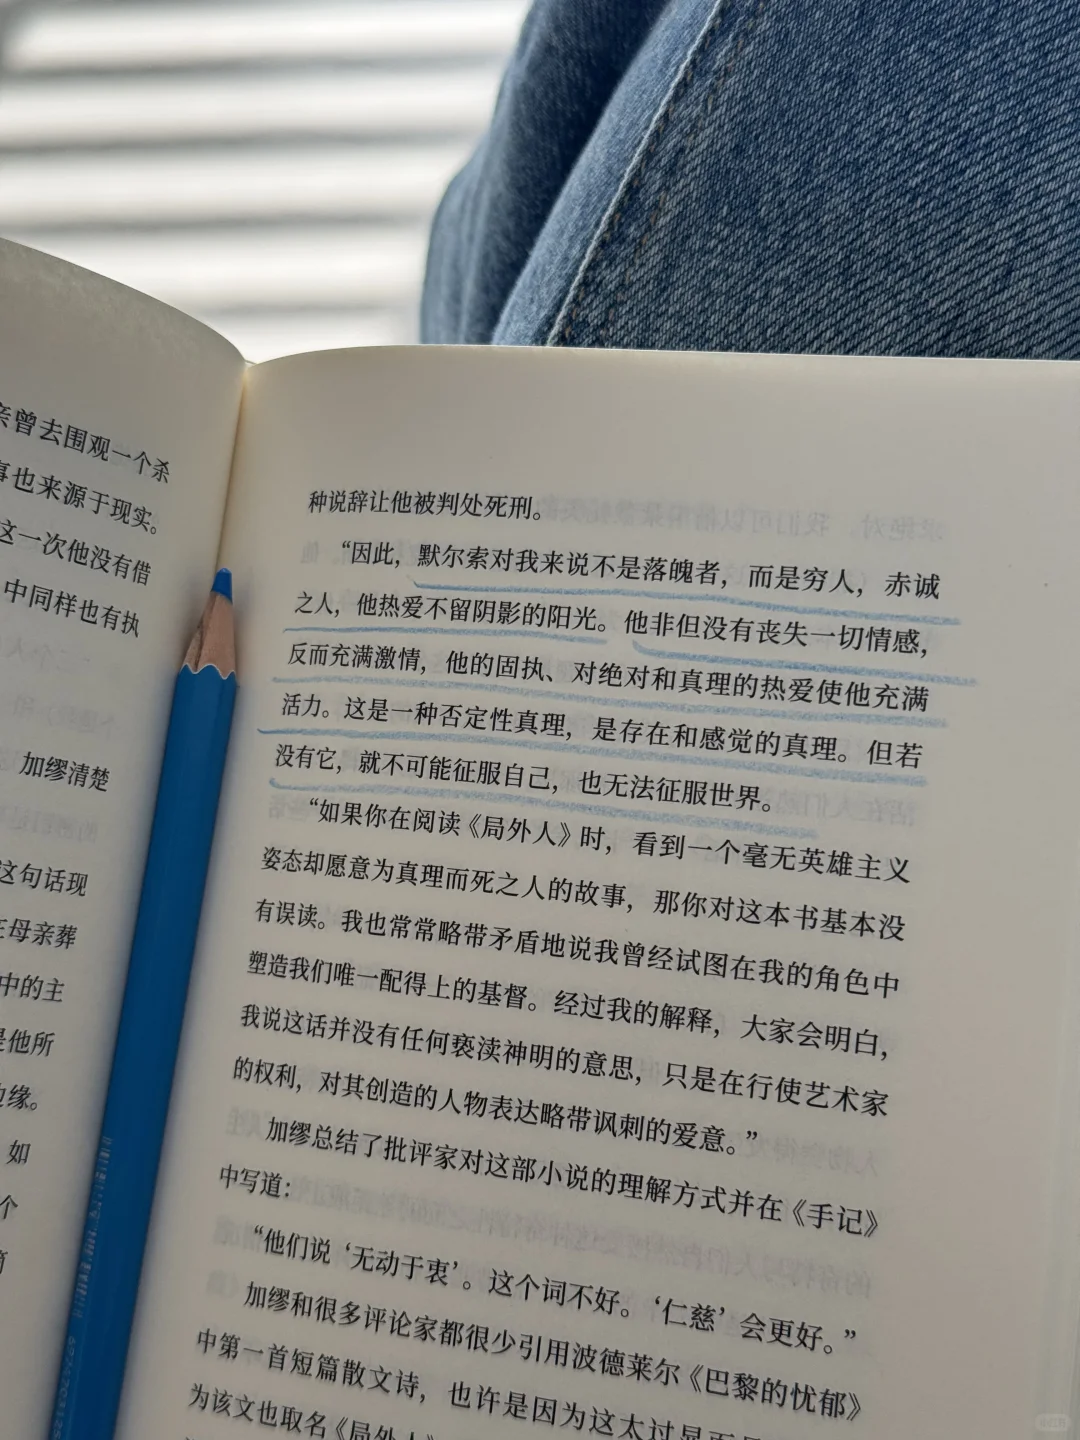 亲曾去围观一个杀
事也来源于现实。
这一次他没有借
中同样也有执
加缪清楚
这句话现
在母亲葬
中的主
是他所
边缘。
如
个
种说辞让他被判处死刑。
“因此，默尔索对我来说不是落魄者，而是穷人，赤诚
之人，他热爱不留阴影的阳光。他非但没有丧失一切情感，
反而充满激情，他的固执、对绝对和真理的热爱使他充满
活力。这是一种否定性真理，是存在和感觉的真理。但若
没有它，就不可能征服自己，也无法征服世界。
“如果你在阅读《局外人》时，看到一个毫无英雄主义
姿态却愿意为真理而死之人的故事，那你对这本书基本没
有误读。我也常常略带矛盾地说我曾经试图在我的角色中
塑造我们唯一配得上的基督。经过我的解释，大家会明白，
我说这话并没有任何亵渎神明的意思，只是在行使艺术家
的权利，对其创造的人物表达略带讽刺的爱意。”
加缪总结了批评家对这部小说的理解方式并在《手记》
中写道：
“他们说‘无动于衷’。这个词不好。‘仁慈’会更好。”
加缪和很多评论家都很少引用波德莱尔《巴黎的忧郁》
中第一首短篇散文诗，也许是因为这太过显而
为该文也取名《局外人》